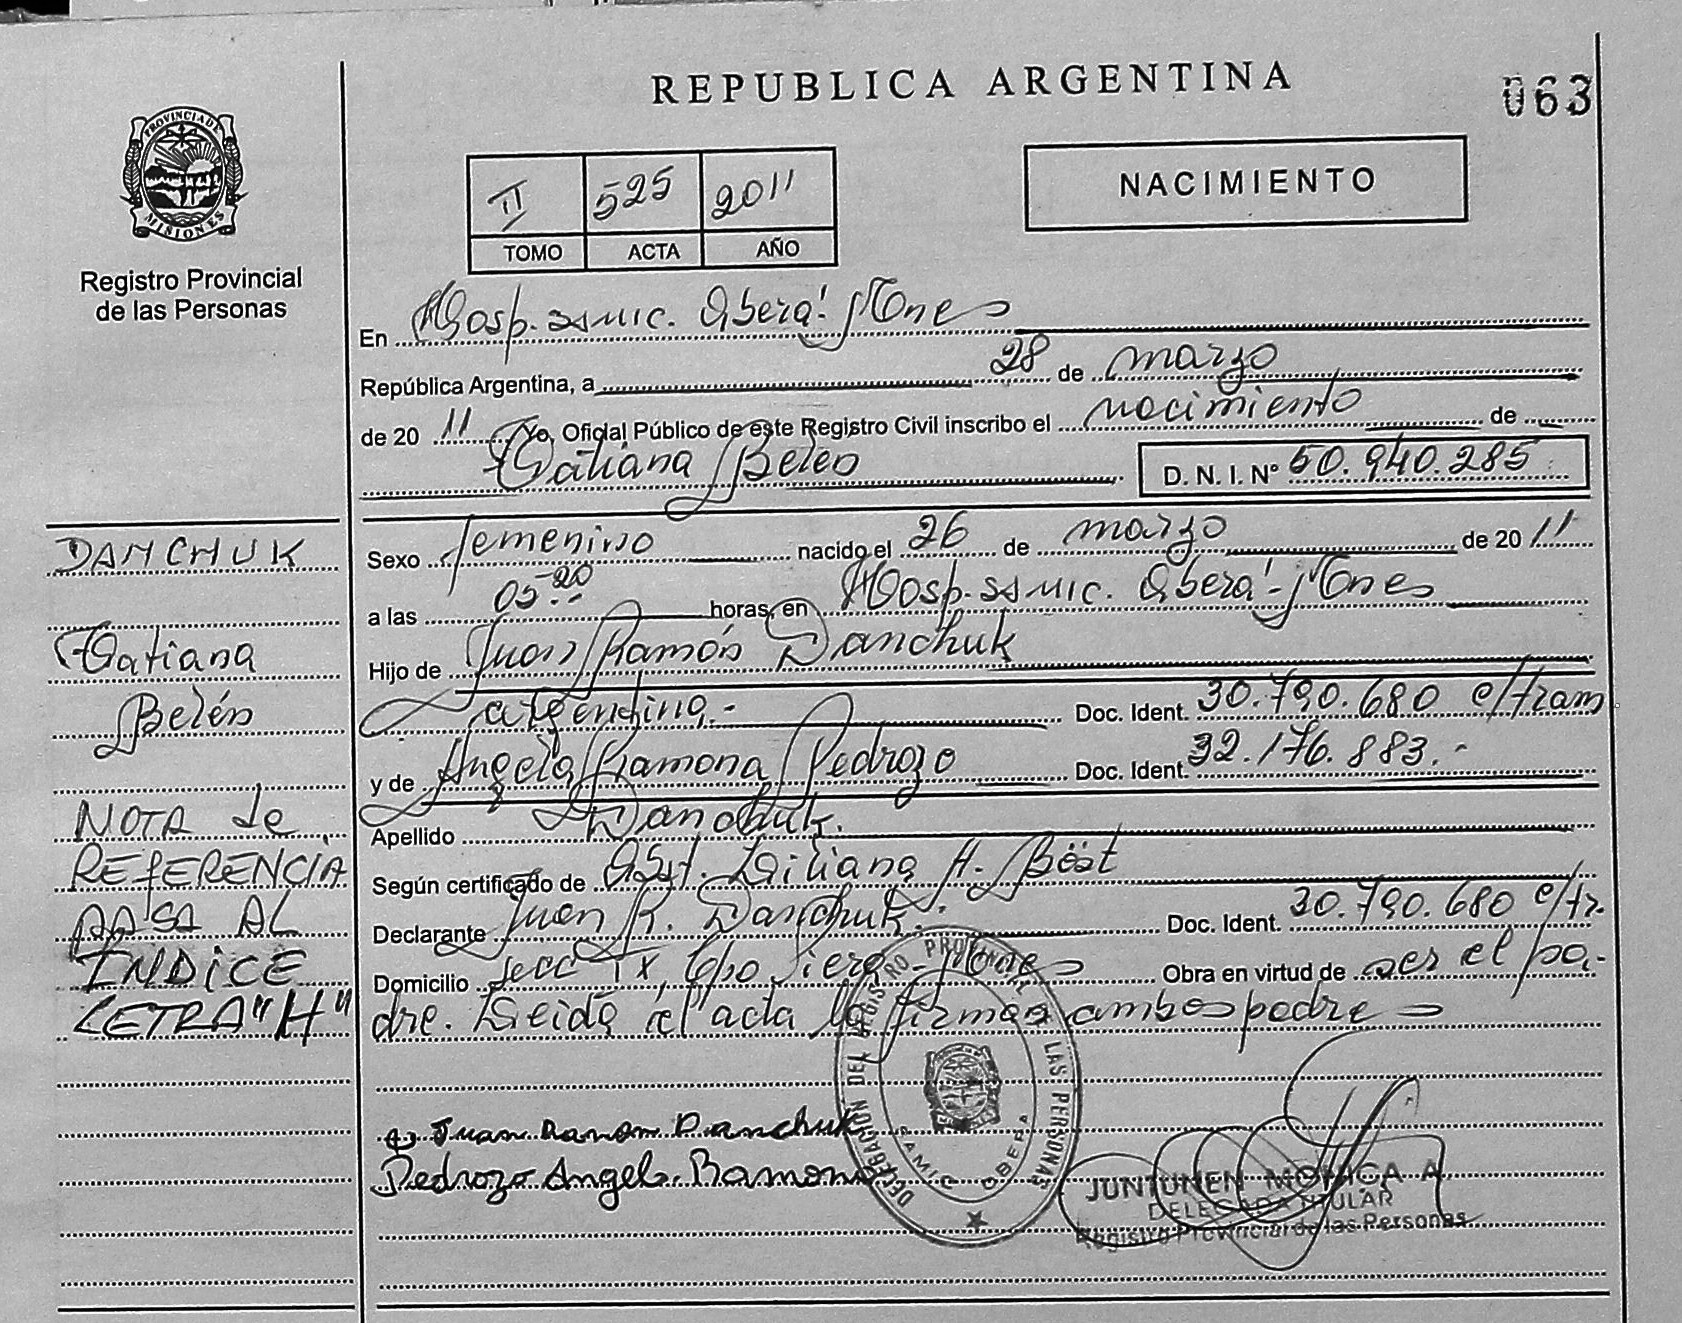 REPUBLICA ARGENTINA
063
PROVINCIA DE
MISIONES
Registro Provincial
de las Personas
II 525 2011
TOMO ACTA AÑO
NACIMIENTO
En Hosp. SSMIC. Oberá - Mnes
República Argentina, a 28 de marzo
de 20 11 Yo, Oficial Público de este Registro Civil inscribo el nacimiento de
Tatiana Belén D. N. I. Nº 50.940.285
DANCHUK
Tatiana
Belén
NOTA de
REFERENCIA
PASA AL
INDICE
LETRA "H"
Sexo femenino nacido el 26 de marzo de 20 11
a las 05-20 horas, en Hosp. SSMIC. Oberá - Mnes
Hijo de Juan Ramón Danchuk
argentino.- Doc. Ident. 30.790.680 e/tram
y de Angela Ramona Pedrozo Doc. Ident. 32.176.883.-
Apellido Danchuk.
Según certificado de Obst. Liliana H. Böst
Declarante Juan R. Danchuk. Doc. Ident. 30.790.680 e/tr.
Domicilio Secc IX, Cpo Viera - Mnes Obra en virtud de ser el pa-
dre. Leída el acta la firman ambos padres
Juan Ramon Danchuk
Pedrozo Angela Ramona
DELEGACION DEL REGISTRO PROVINCIAL DE LAS PERSONAS
SAMIC OBERA
JUNTUNEN MONICA A.
DELEGADA TITULAR
Registro Provincial de las Personas